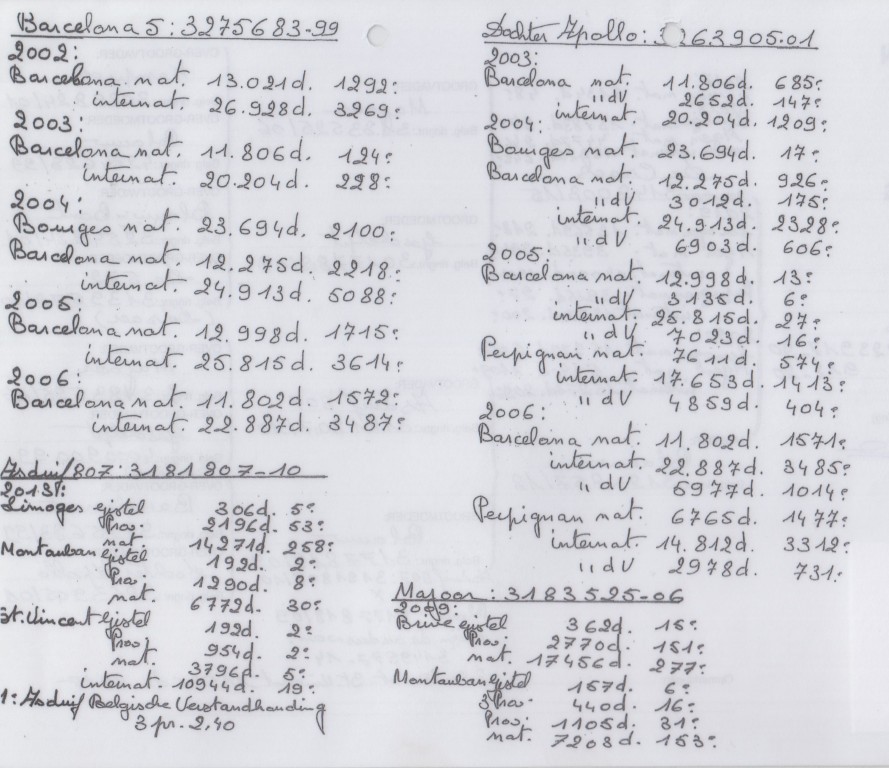 Barcelona 5: 3275683-99
2002:
Barcelona nat. 13.021d. 1292e
internat. 26.928d. 3269e
2003:
Barcelona nat. 11.806d. 124e
internat. 20.204d. 228e
2004:
Bourges nat. 23.694d. 2100e
Barcelona nat. 12.275d. 2218e
internat. 24.913d. 5088e
2005:
Barcelona nat. 12.998d. 1715e
internat. 25.815d. 3614e
2006:
Barcelona nat. 11.802d. 1572e
internat. 22.887d. 3487e
Asduif 807: 3181807-10
2013:
Limoges ejstel 306d. 5e
Prov. 2196d. 53e
nat. 14271d. 258e
Montauban ejstel 192d. 2e
Prov. 1290d. 8e
nat. 6772d. 30e
St. Vincent ejstel 192d. 2e
Prov. 954d. 2e
nat. 3796d. 5e
internat. 10944d. 19e
1e Asduif Belgische Verstandhouding
3 pr. 2,40
Dochter Apollo: 3263905-01
2003:
Barcelona nat. 11.806d. 685e
"dV 2652d. 147e
internat. 20.204d. 1209e
2004:
Bourges nat. 23.694d. 17e
Barcelona nat. 12.275d. 926e
"dV 3012d. 175e
internat. 24.913d. 2328e
"dV 6903d. 606e
2005:
Barcelona nat. 12.998d. 13e
"dV 3135d. 6e
internat. 25.815d. 27e
"dV 7023d. 16e
Perpignan nat. 7611d. 574e
internat. 17.653d. 1413e
"dV 4859d. 404e
2006:
Barcelona nat. 11.802d. 1571e
internat. 22.887d. 3485e
"dV 5977d. 1014e
Perpignan nat. 6765d. 1477e
internat. 14.812d. 3312e
"dV 2978d. 731e
Majoor: 3183525-06
2009:
Brive ejstel 362d. 15e
Prov. 2770d. 151e
nat. 17456d. 277e
Montauban ejstel 157d. 6e
3Prov. 440d. 16e
Prov. 1105d. 31e
nat. 7203d. 153e